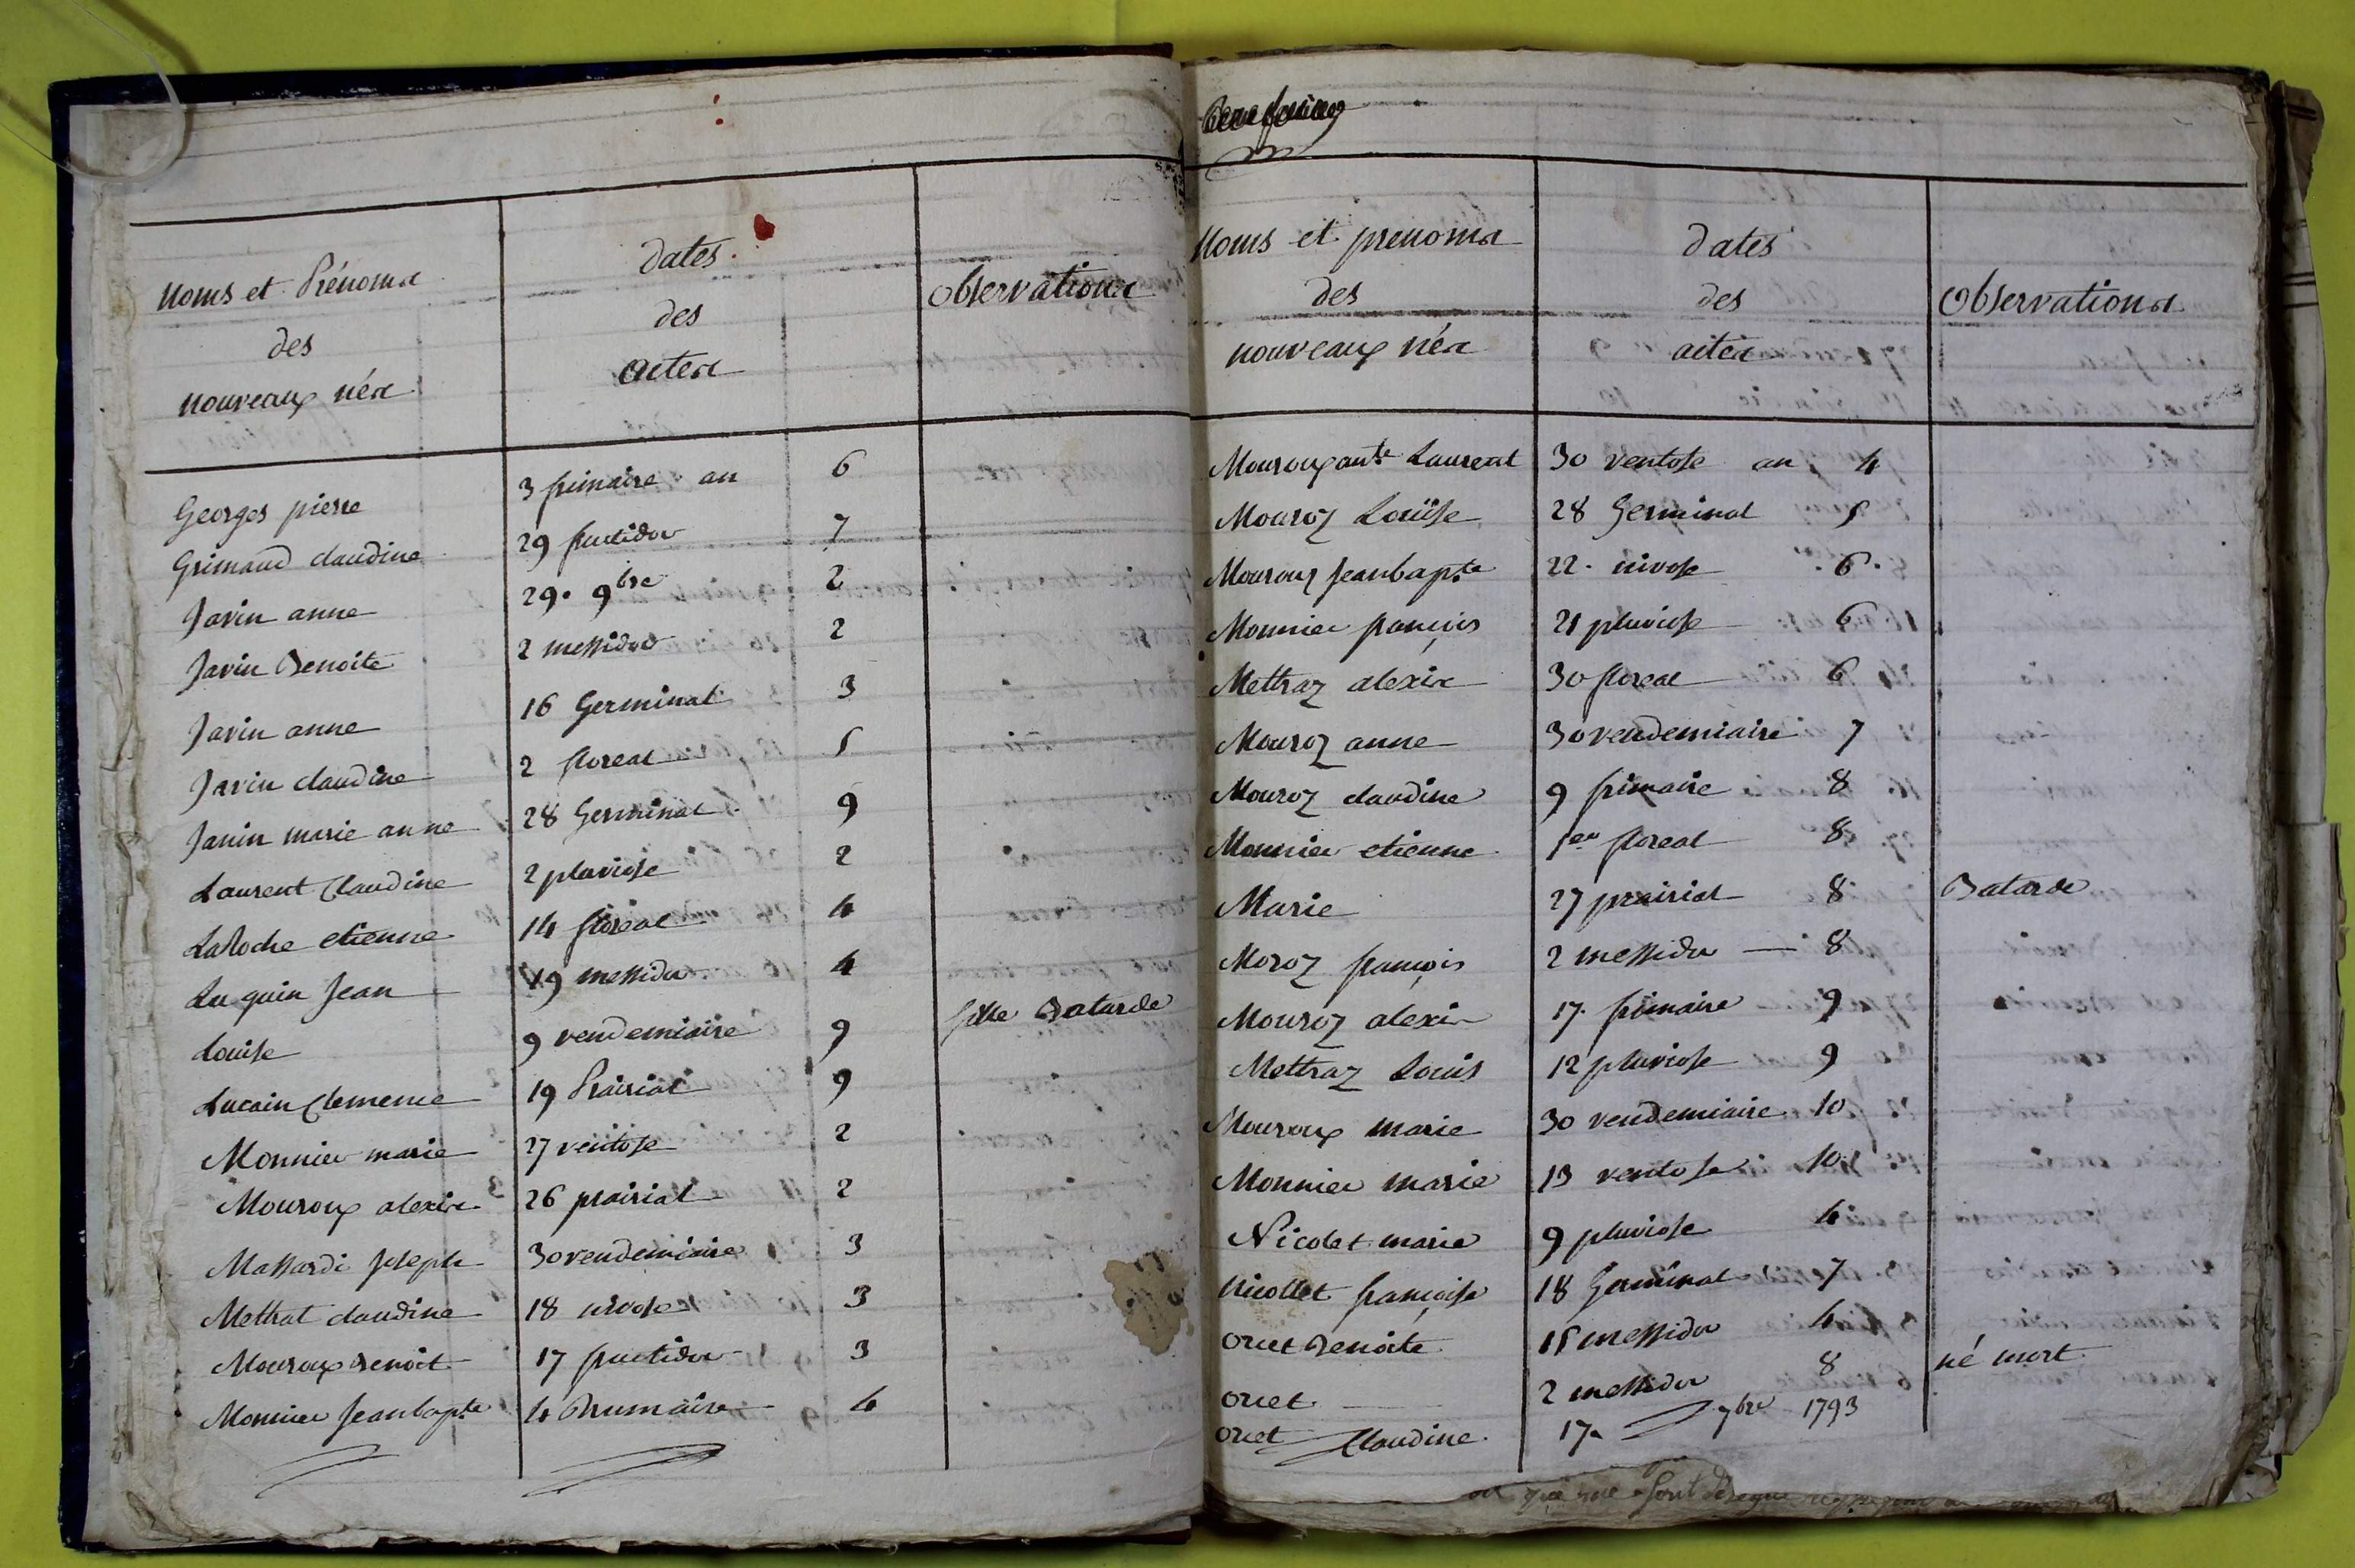 Noms et Prénoms
des
nouveaux nés
dates
des
actes
observations
Georges pierre 3 frimaire an 6
Grimaud claudine 29 fructidor 7
Javin anne 29. 9bre 2
Javin Benoite 2 messidor 2
Javin anne 16 Germinal 3
Javin claudine 2 floreal 5
Janin marie anne 28 Germinal 9
Laurent Claudine 2 pluviose 2
LaRoche etienne 14 floréal 4
Lu quin Jean 19 messidor 4
Louise 9 vendemiaire 9 fille Batarde
Lucain Clemence 19 Prairial 9
Monnier marie 27 ventose 2
Mouroux alexis 26 prairial 2
Massardi joseph 30 vendemiaire 3
Mettrat claudine 18 nivose 3
Mouroux Benoit 17 fructidor 3
Monnier Jeanbapte 4 Brumaire 4
Noms et prenoms
des
nouveaux nés
dates
des
actes
observations
Mouroux ante Laurent 30 ventose an 4
Mouroz Louïse 28 Germinal 5
Mouroux Jeanbapte 22. nivose 6.
Monnier françois 21 pluviose 6
Mettraz alexis 30 floreal 6
Mouroz anne 30 vendemiaire 7
Mouroz claudine 9 frimaire 8
Monnier etienne 1er floreal 8
Marie 27 prairial 8 Batarde
Moroz françois 2 messidor 8
Mouroz alexis 17. frimaire 9
Mettraz Louis 12 pluviose 9
Mouroux marie 30 vendemiaire 10
Monnier marie 13 ventose 10
Nicolet marie 9 pluviose 4
Nicollet françoise 18 Germinal 7
orcet Benoite 15 messidor 4
orcet 2 messidor 8 né mort
orcet Claudine 17. 7bre 1793